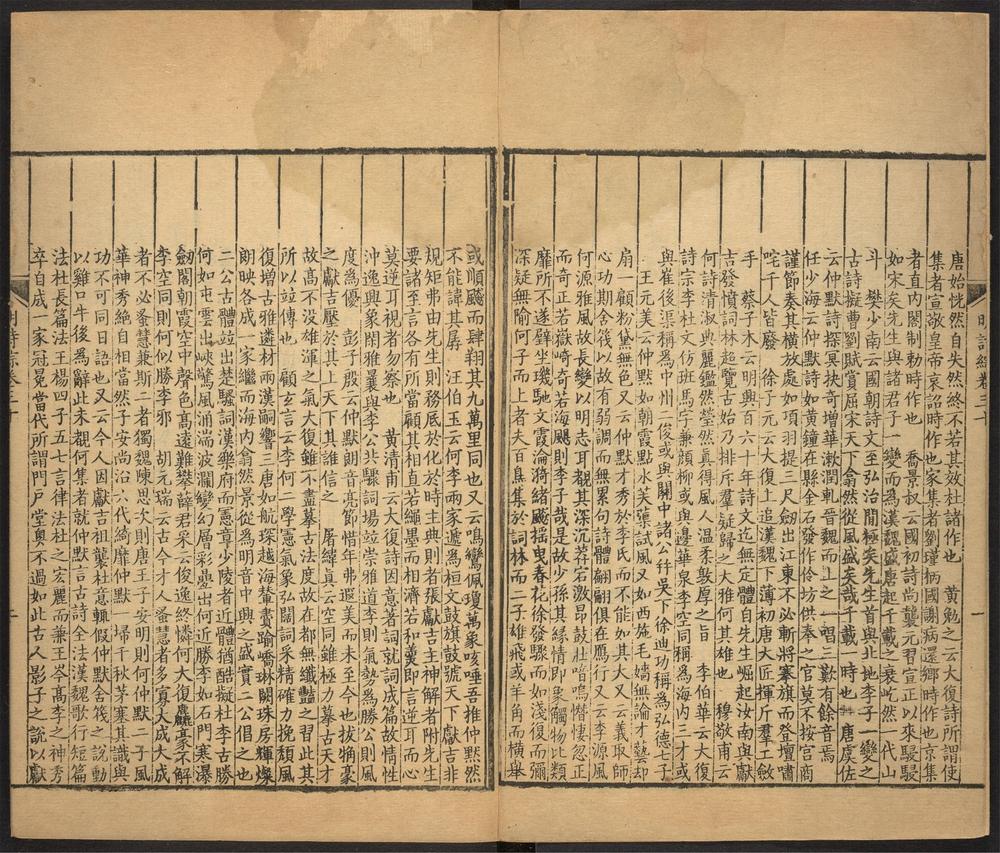 唐始恍然自失然終不若其效杜諸作也　黃勉之云大復詩所謂使
集者宣敬皇帝哀詔時作也家集者劉瑾柄國謝病還鄉時作也京集
者直內閣制勅時作也　喬景叔云國初詩尚襲元習宣正以來駸駸
如宋矣先生與諸君子一變而為漢魏盛唐起千載之衰屹然一代山
斗　樊少南云國朝詩文至弘治閒極矣先生首與北地李子一變之
古詩擬曹劉賦賞屈宋天下翕然從風盛矣哉千載一時也　唐虞佐
云仲默詩探冥抉奇增華漱潤軋晉魏而上之一唱三歎有餘音焉
任少海云仲默詩如黃鐘在縣金石發作伶坊供奉之官莫不按宮商
謹節奏其橫放處如項羽提三尺劒出江東不必斬將搴旗而登壇嘯
咤千人皆廢　徐子元云大復上追漢魏下薄初唐大匠揮斤羣工斂
手　蔡子木云明興百六十年詩文迄無定體自先生崛起汝南與獻
吉發憤詞林超覽古始乃排斥羣疑歸之大雅何其雄也　穆敬甫云
何詩清淑典麗鑑然瑩然眞得風人溫柔敦厚之旨　李伯華云大復
詩宗李杜文仿班馬字兼顏柳或與邊華泉李空同稱為海內三才或
與崔後渠稱為中州二俊或與關中諸公幷吳下徐迪功稱為弘德七子
　王元美云仲默如朝霞點水芙蕖試風又如西施毛嬙無論才藝却
扇一顧粉黛無色又云仲默才秀於李氏而不能如其大又云義取師
心功期舍筏以故有弱調而無累句詩體翩翩俱在鴈行又云李源風
何源雅風故長變以明志耳覩其深沉莽宕激昂鼓壯喑嗚憯悽忽正
而奇正若嶽崎奇若海颶則李子哉是故少孫其緣情卽象觸物比類
靡所不遂璧坐璣馳文霞淪漪緒颷搖曳春花徐發驟而如淺復而彌
深疑無閒何子而上者夫百鳥集於詞林而二子雄飛或羊角而橫舉
明詩綜卷三十
一
或順颷而肆翔其九萬里同也又云鳴鸞佩瓊萬象咳唾吾推仲默然
不能諱其孱　汪伯玉云何李兩家遞為桓文鼓旗鼓號天下獻吉非
規矩弗由先生則務底於化於時主典則者張獻吉主神解者附先生
要諸至言各有所當顧其相直若繩墨而相濟若和羹卽言逆耳而心
莫逆耳視者勿察也　黃清甫云大復詩因意著詞就詞成篇故情性
沖逸興象閑雅曩與李公北驟詞場竝崇雅道李則氣勢為勝公則風
度為優　彭子殷云仲默朗音亮節惜年弗遐美而未至今也拔犄豪
之獻吉以壓於其上天下其誰信之　屠緯真云空同雖極力摹古天才
故高不沒雄渾之氣大復雖不盡摹古法度故在都無纖豔之習此其
所以竝傳也　顧玄言云李何二學憲氣象弘闊詞采精確力挽頹風
復增古雅遴材兩漢嗣響三唐如航琛越海輦賮踰嶠琳闕珠房輝燦
朗映各成一家繼而海內翕然景從為明音中興之盛實二公倡之也
二公古體竝出楚騷詞漢樂府而憲章少陵者近體猶酷擬杜李古勝
何如屯雲出峽驚風涌湍波瀾變幻層彩疊出何近勝李如石門寒瀑
劒閣朝霞空中聲色高遠難攀薛君采云俊逸終憐何大復麤豪不解
李空同則何似勝李耶　胡元瑞云古今才人蚤慧者多寡大成大成
者不必蚤慧兼斯二者獨魏陳思次則唐王子安明則何仲默二子風
華神秀絕自相當然子安尚沿六代綺靡仲默一埽千秋茅塞其識與
功不可同日語也又云今人因獻吉祖襲杜意輒假仲默舍筏之說動
以雞口牛後為辭此未覩何集者就仲默言古詩全法漢魏歌行短篇
法杜長篇法王楊四子五七言律法杜之宏麗而兼王岑高李之神秀
卒自成一家冠冕當代所謂門戶堂奧不過如此古人影子之說以獻
明詩綜卷三十
二